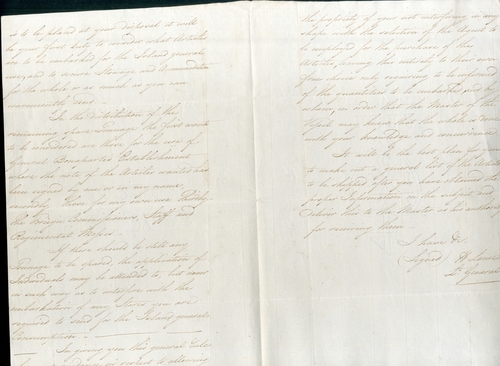 is to be placed at your disposal it will
be your first duty to consider what Articles
are to be embarked for the Island general
use, and to secure Stowage and Accommodation
for the whole or as much as you can
In the distribution of the
remaining spare tonnage the first wants
to be considered are those for the use of
General Bonapartes Establishment
where the note of the Articles wanted has
been signed by me or in my name.
2dly Those for my own use. Thirdly
the Foreign Commissioners, Staff and
Regimental Messes.
If there should be still any
Tonnage to be spared, the application of
Individuals may be attended to, but never
in such way as to interfere with the
embarkation of any Stores you are
required to send for the Island general
Consumption.
In giving you this general
in respect to allowing
the propriety of your not interfering in any
shape with the selection of the Agent to
be employed for the purchase of the
Articles, leaving this entirely to their own
free choice only requiring to be informed
of the quantities to be embarked and by
whom, in order that the Master of the
Vessel may that the whole is done
with your knowledge and concurrence.
It will be the best plan for you
to make out a general list of the Articles
to be shipped after you have obtained the
proper Information on the subject and
deliver this to the Master as his authority
for receiving them.
I have &c.
Signed H. Lowe
Lt. General